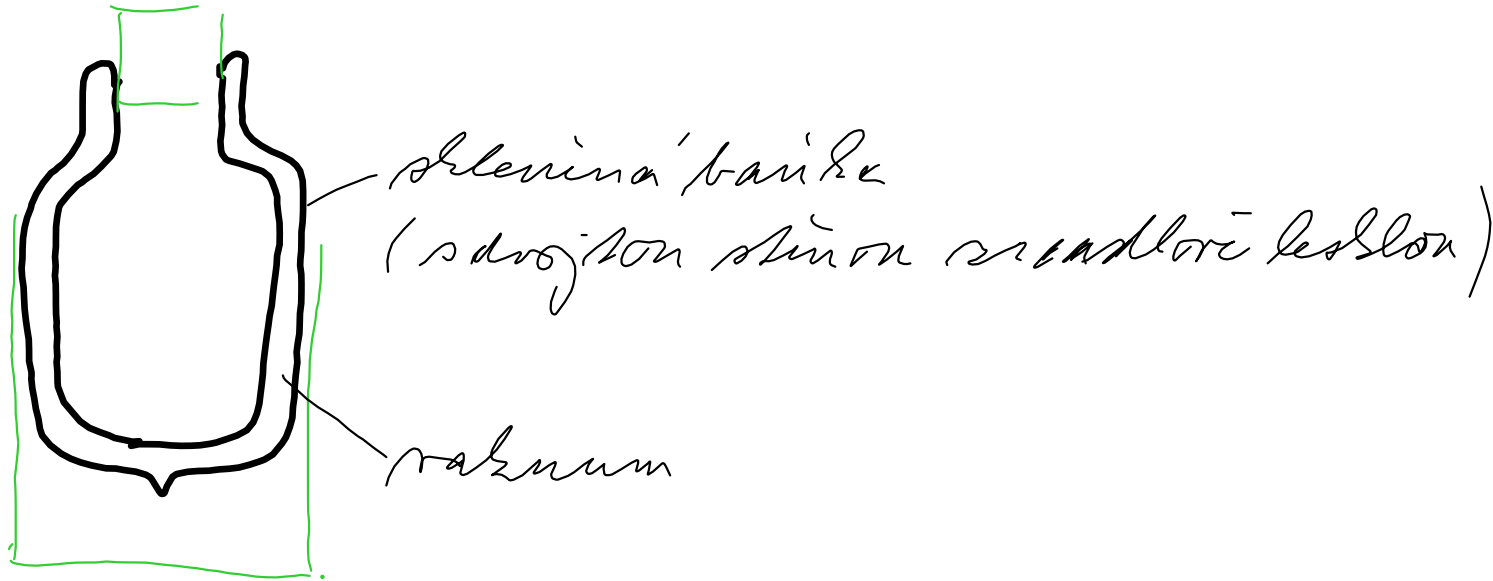 skleněná baňka
(s dvojitou stěnou zrcadlově lesklou)
vakuum